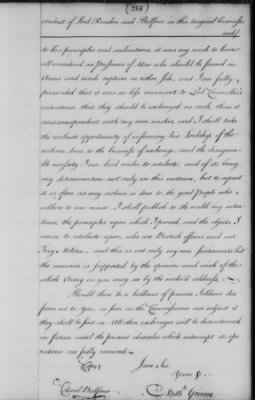 (286)
conduct of Lord Rawdon and Balfour in this original Business,
and
to his principles and inclinations, it was my wish to have
all considered as Prisoners of War who should be found in
Arms and made captives on either side, and I am fully
persuaded that it was as little consonant to Lord Cornwallis's
intentions that they should be exchanged as such, than it
correspondent with my own wishes, and I shall take
the earliest opportunity of informing his Lordship of the
violence done to the business of exchange, and the disagree-
able necessity I am laid under to retaliate, and of its being
my determination not only in this instance, but to repeat
it as often as any violence is done to the good People who
adhere to our cause. I shall publish to the world my inten-
tions, the principles upon which I proceed, and the objects I
mean to retaliate upon, who are British officers and not
Tory Militia and this is not only my own sentiments but
the measure is supported by the opinion and wish of the
whole Army as you may see by the enclos'd address.
Should there be a ballance of private Soldiers due
from us to you, as soon as the Commissioner can adjust it
they shall be sent in. All other exchanges will be discontinued
in future until the present obstacles which interrupt its ope-
rations are fully removed.
I am Sir
Yours &c
(Copy)
Colonel Balfour
Nath. Greene